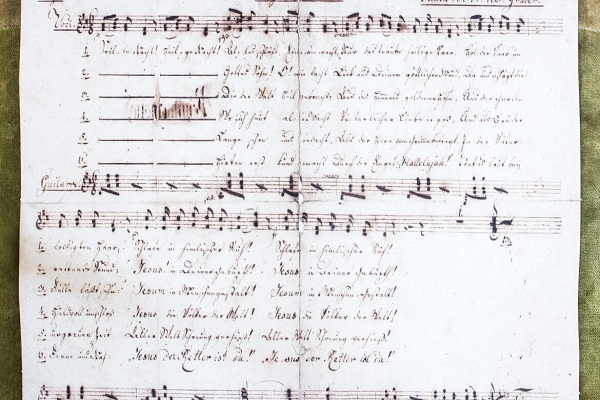 Voce
1. Stille Nacht! Heilige Nacht! Alles schläft; Einsam wacht Nur das traute heilige Paar. Holder Knab' im
2. Gottes Sohn! O! wie lacht Lieb' aus Deinem göttlichen Mund, Da schlägt uns die
3. Die der Welt Heil gebracht, Aus des Himmels goldenen Höhn, Uns der Gnaden
4. Wo sich heut alle Macht Väterlicher Liebe ergoß, Und als Bruder
5. Lange schon uns bedacht, Als der Herr vom Grimme befreyt, In der Väter
6. Hirten erst kund gemacht Durch der Engel Hallelujah! Tönt es laut bey
Guitarre
1. lockigten Haar; Schlafe in himlischer Ruh! Schlafe in himlischer Ruh!
2. rettende Stund; Jesus in Deiner Geburt! Jesus in Deiner Geburt!
3. Fülle läßt seh'n; Jesum in Menschengestalt! Jesum in Menschengestalt!
4. huldvoll umschloß Jesus die Völker der Welt! Jesus die Völker der Welt!
5. urgrauer Zeit Aller Welt Schonung verhieß! Aller Welt Schonung verhieß!
6. Ferne und Nah: Jesus der Retter ist da! Jesus der Retter ist da!